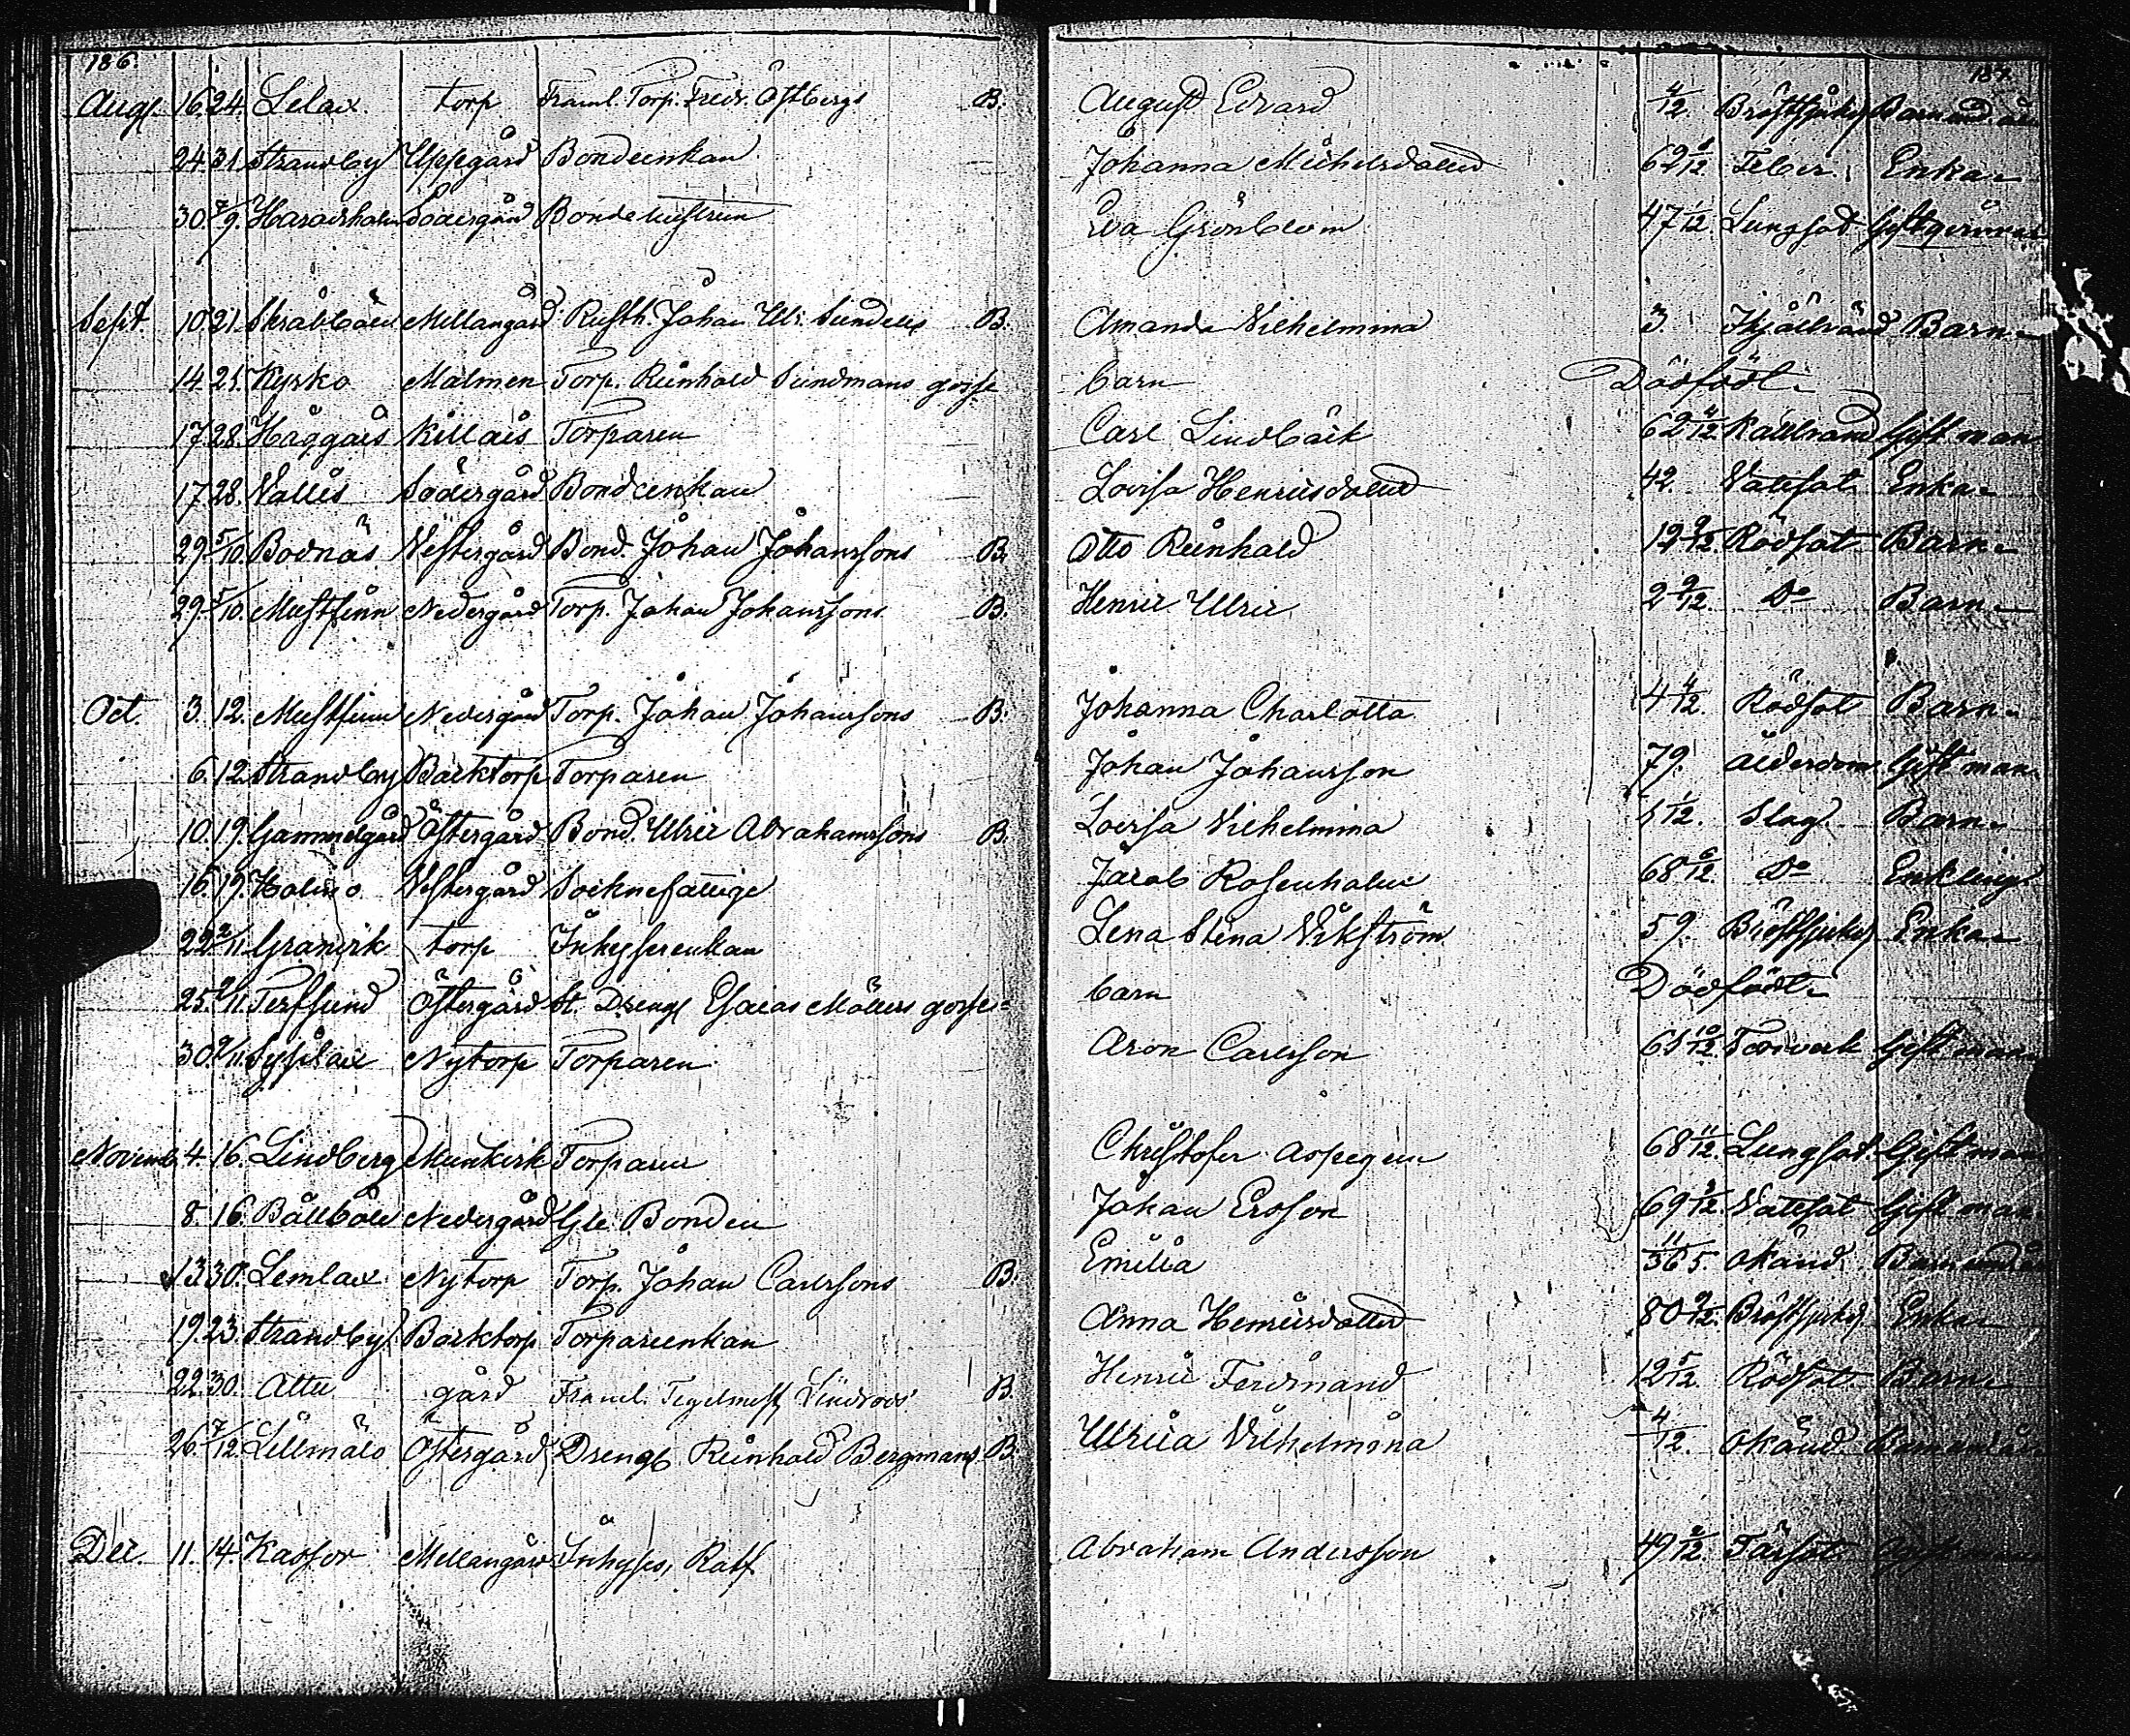 186.
187.
Aug. 16. 24. Lelax torp Framl. Torp. Fredr. Östbergs B. August Edvard 4/12. Bröstsjukd Barn und. år
24. 31. Strandby Uppgård Bondeenkan Johanna Michelsdotter 62 /12 Feber. Enka
30. 7/9. Haradsholm Södergård Bonde Eva Grönblom 47 /12. Lungsot Gift
Sept. 10. 21. Skråbböle Mellangård Rusth. Johan Ulr. Sundells B. Amanda Wilhelmina 3 Barn
14. 21. Kyrko Malmen Torp. Reinhold Sundmans gosse barn Dödfödt.
17. 28. Haggais Killais Torparen Carl Lindbäck 62 4/12 Kallbrand Gift man
17. 28. Vallis Södergård Bondeenkan Lovisa Henricsdotter 42. Vattsot Enka
29. 5/10. Bodnäs Westergård Bond. Johan Johanssons B. Otto Reinhold 12 9/12. Rödsot Barn
29. 5/10. Mustfinn Nedergård Torp. Johan Johanssons B. Henric Ulric 2 9/12. Do Barn
Oct. 3. 12. Mustfinn Nedergård Torp. Johan Johanssons B. Johanna Charlotta 4 4/12. Rödsot Barn
6. 12. Strandby Backtorp Torparen Johan Johansson 79. ålderdom Gift man
10. 19. Gammelgård Östergård Bond. Ulric Abrahamssons B. Lovisa Wilhelmina 1/12. Slag Barn
16. 19. Holmo Westergård Socknefattige Jacob Rosenholm 68 6/12. Do Enkling
22. 2/11. Granvik torp Inhysesenkan Lena Stina Wikström 59. Bröstsjukd Enka
25. 2/11. Terfsund Östergård St. Dreng Esaias Möllers gosse barn Dödfödt
30. 9/11. Sysilax Nytorp Torparen Aron Carlsson 65 10/12. Gift man
Novemb. 4. 16. Lindberg Munkvik Torparen Christofer Aspegren 68 11/12. Lungsot Gift man
8. 16. Bällböle Nedergård Gle. Bonden Johan Ersson 69 /12. Vattsot Gift man
13. 30. Lemlax Nytorp Torp. Johan Carlssons B. Emilia 11/365. Okänd. Barn und. år
19. 23. Strandby Backtorp Torpareenkan Anna Henricsdotter 80 9/12. Bröstsjukd Enka
22. 30. Attu gård Framl. Tegelmest. Lindroos B. Henric Ferdinand 12 5/12. Rödsot Barn
26. 7/12. Lillmälö Östergård Drengs Reinhold Bergmans B. Ulrica Wilhelmina 4/12. Okänd Barn und. år
Dec. 11. 14. Kassor Mellangård Inhyses, Ratf Abraham Andersson 49 2/12. Tärsot Gift man